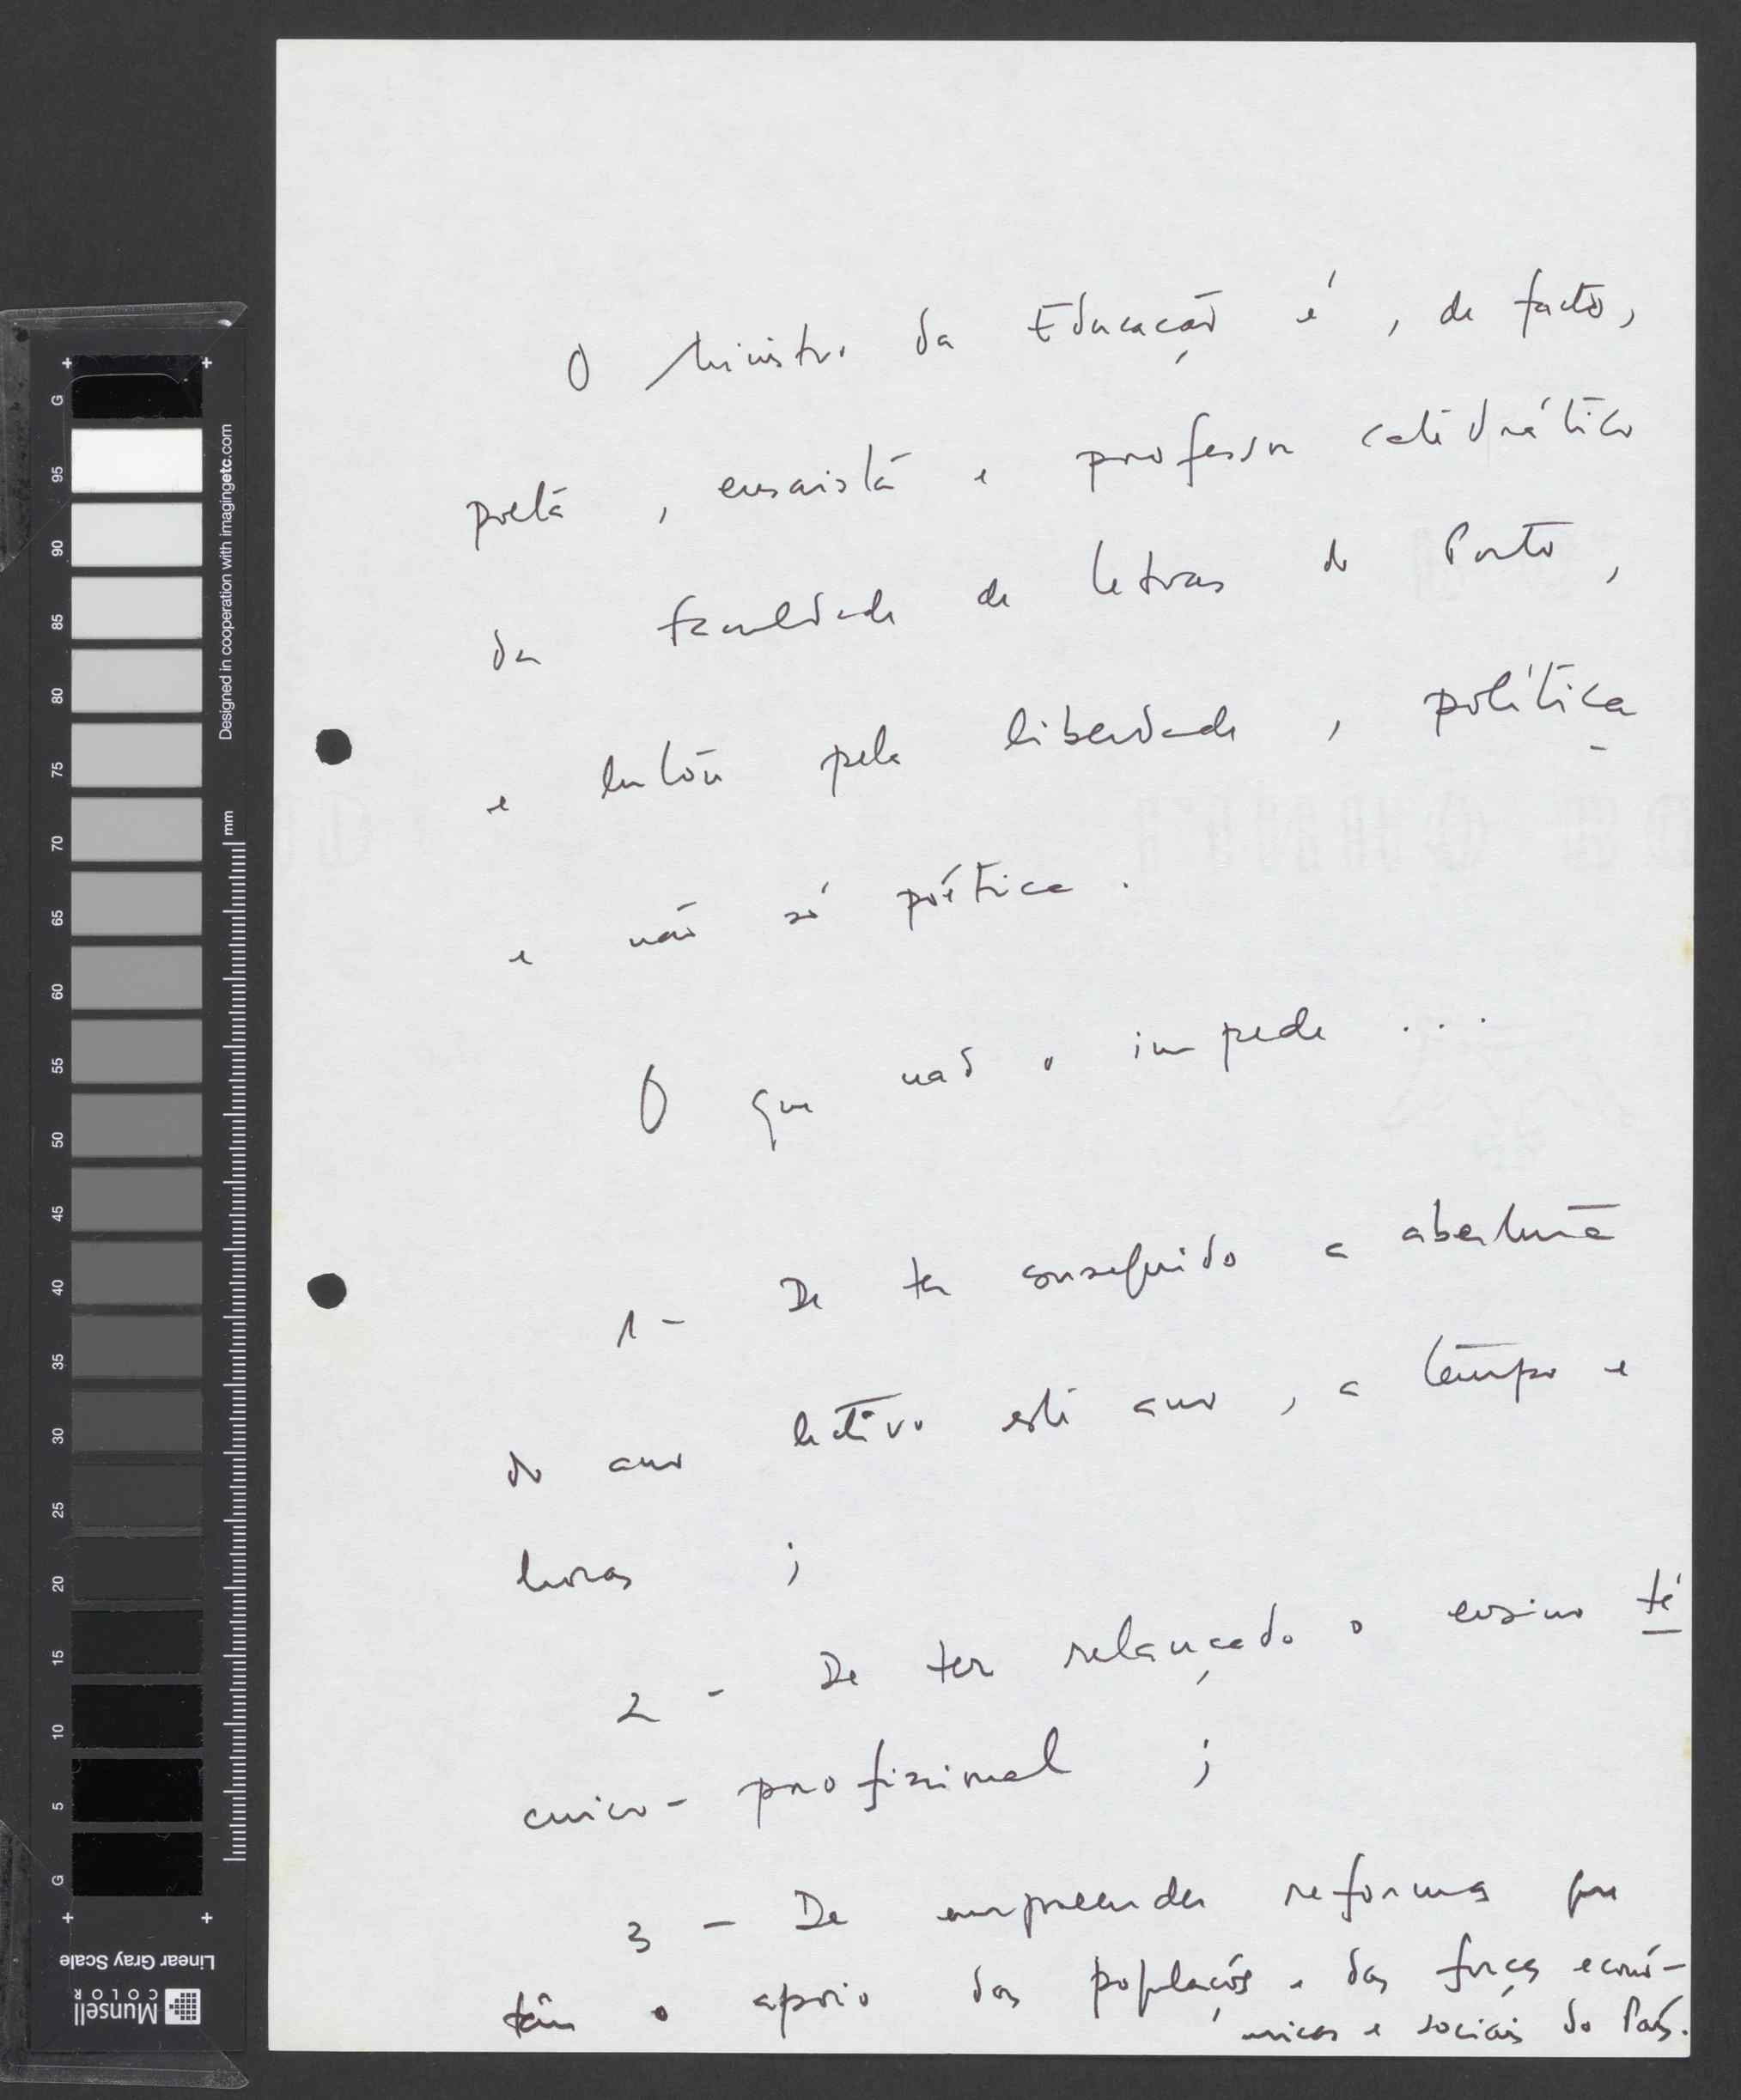 O Ministro da Educação é, de facto,
poeta, ensaista e professor catedrático
da faculdade de letras do Porto,
e lutou pela liberdade, política
e não só poética.
O que não o impede ...
1 - De ter conseguido a abertura
do ano lectivo este ano, a tempo e
horas ;
2 - De ter relançado o ensino té
cnico - profissional ;
3 - De empreender reformas que
têm o apoio das populações e das forças econó-
micas e sociais do País.
G
95
90
85
80
75
70
65
60
55
50
45
40
35
30
25
20
15
10
5
G
Designed in cooperation with imagingetc.com
mm
Linear Gray Scale
Munsell
COLOR